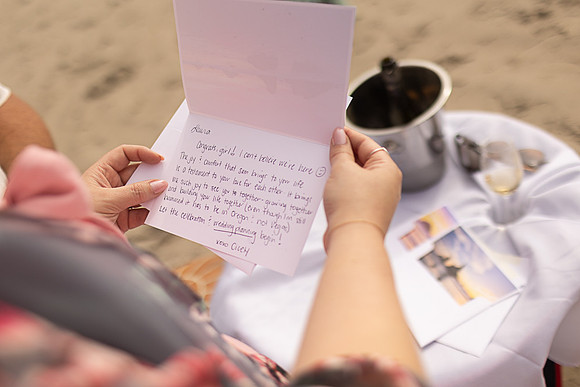 Laura
Congrats, girl! I can't believe we're here ☺
The joy & comfort that Sam brings to your life
is a testament to your love for each other. It brings
me such joy to see you two together - growing together
and building your life together (even though I'm still
bummed it has to be in Oregon & not Vegas)
Let the celebration & wedding planning begin!
xoxo Casey